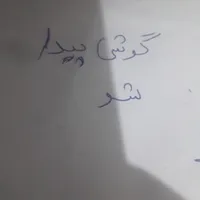 گوشی پیدا
شو